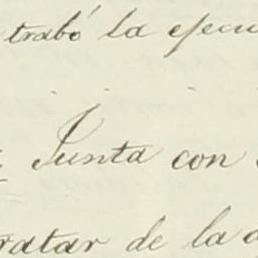 trabó la ejecu
Junta con
ratar de la